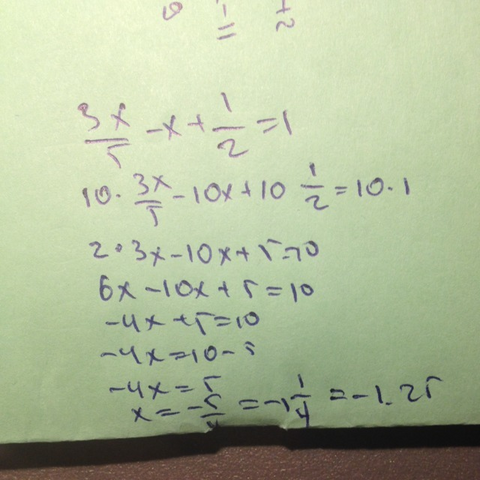 3x/5 - x + 1/2 = 1
10 · 3x/5 - 10x + 10 1/2 = 10 · 1
2 · 3x - 10x + 5 = 10
6x - 10x + 5 = 10
-4x + 5 = 10
-4x = 10 - 5
-4x = 5
x = -5/4 = -1 1/4 = -1.25